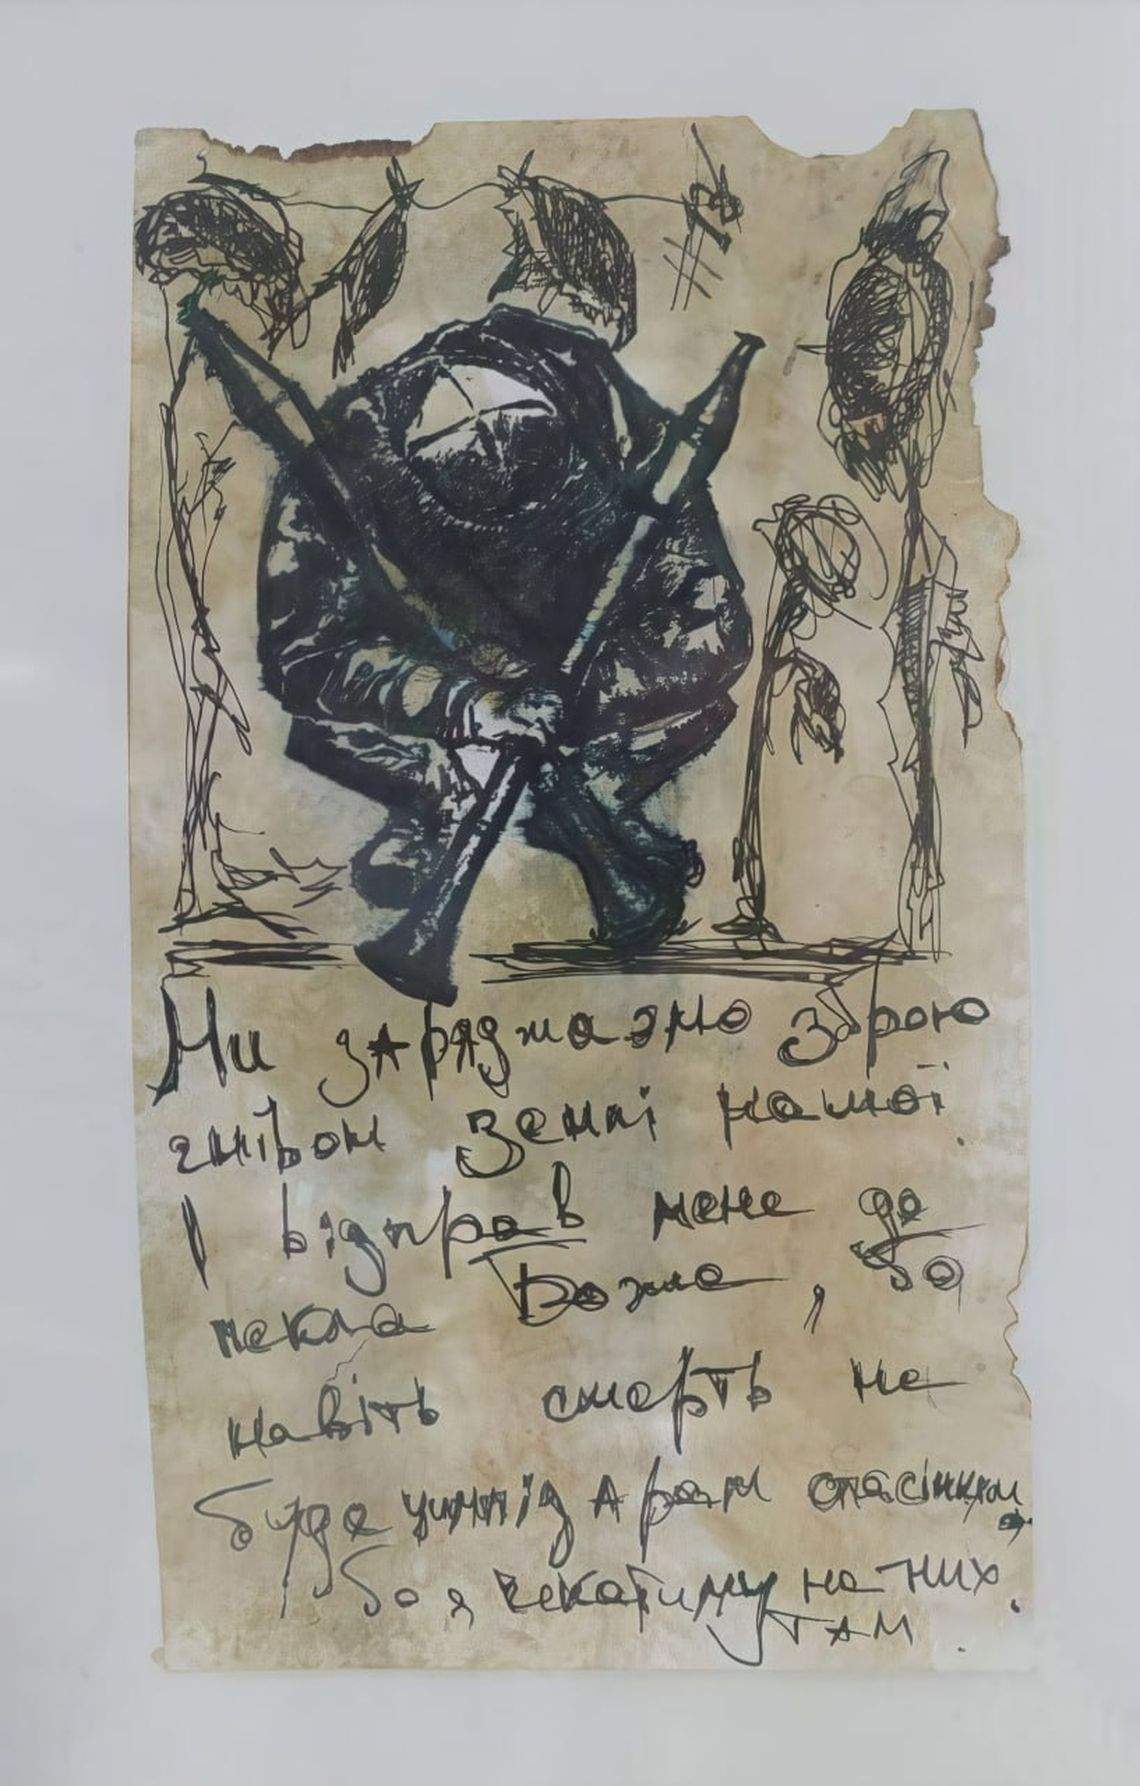 Ми заряджаэмо зброю
гнівом Землі нашої.
І відправ мене до
пекла Боже, бо
навіть смерть не
буде підарам спасінням,
бо я чекатиму на них
там.